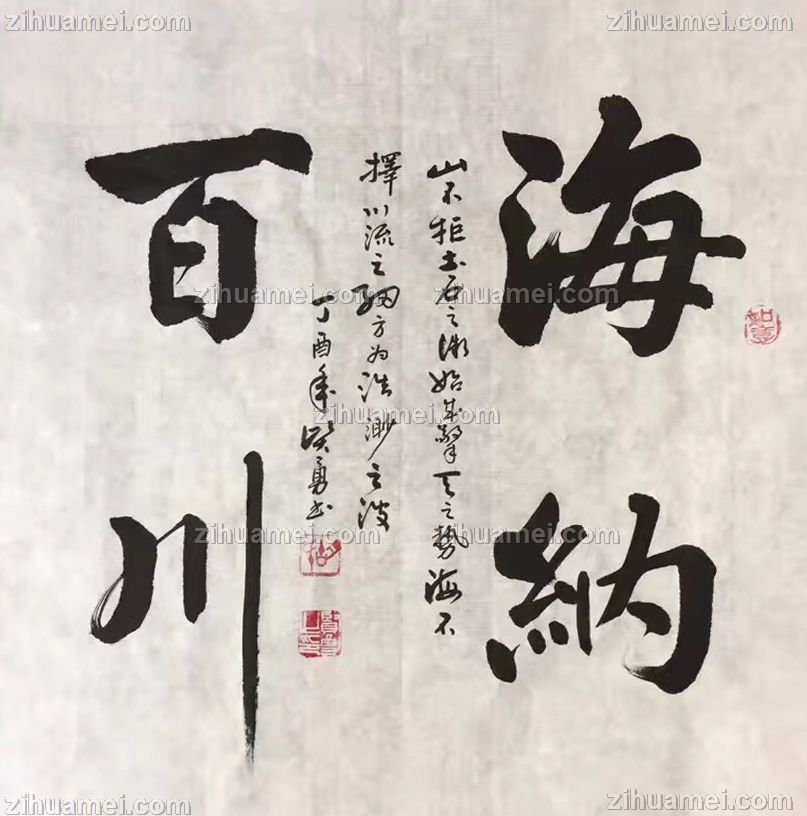 海納
山不拒土石之微始成擎天之勢海不
擇川流之細方为浩渺之波
丁酉年 勇书
百川
如意
zihuamei.com
zihuamei.com
zihuamei.com
zihuamei.com
zihuamei.com
zihuamei.com
zihuamei.com
zihuamei.com
zihuamei.com
zihuamei.com